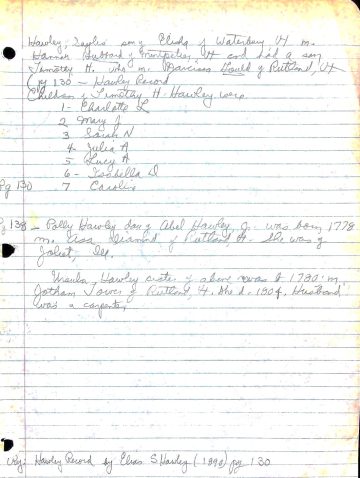 Hawley, son of Elisha of Waterbury Vt m.
Hannah Hubbard of Montpelier, Vt and had a son
Timothy H. who m. Narcissa Gould of Rutland, Vt
(pg 130 - Hawley Record
Children of Timothy H. Hawley were
1- Charlotte L
2 Mary J
3 Sarah N
4 Julia A
5 Lucy A
6- Isabella D
Pg 130 7 Caroline
Pg 138 - Polly Hawley dau of Abel Hawley, Jr. was born 1778
m. of Rutland, Vt. She was of
Joliet, Ill.
Hawley sister of above was b 1780 m.
Jotham of Rutland, Vt. She d. 1804. Husband
was a carpenter.
Hawley Record by Elias S Hawley (1890) pg 130